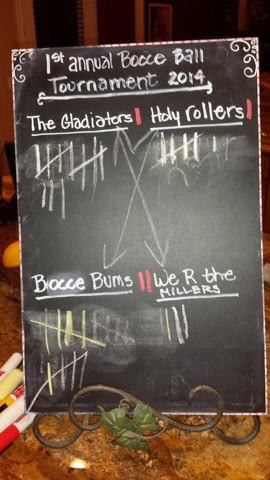 1st annual Bocce Ball
Tournament 2014
The Gladiators Holy rollers
Bocce Bums We R the
MILLERS